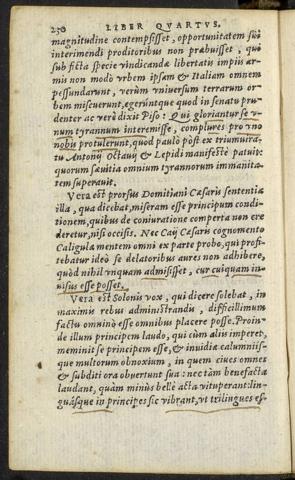 230 LIBER QVARTVS.
magnitudine contempsisset, opportunitatem sui
interimendi proditoribus non præbuisset, qui
sub ficta specie vindicandæ libertatis impiis ar-
mis non modò vrbem ipsam & Italiam omnem
pessundarunt, verùm vniuersum terrarum or-
bem miscuerunt, egeruntque quod in senatu pru-
denter ac verè dixit Piso: Qui gloriantur se v-
num tyrannum interemisse, complures pro vno
nobis protulerunt, quod paulò pòst ex triumuira-
tu Antonij Octauij & Lepidi manifestè patuit:
quorum sæuitia omnium tyrannorum immanita-
tem superauit.
Vera est prorsus Domitiani Cæsaris sententia
illa, qua dicebat, miseram esse principum condi-
tionem, quibus de coniuratione comperta non cre
deretur, nisi occisis. Nec Caij Cæsaris cognomento
Caligulæ mentem omni ex parte probo, qui profi-
tebatur ideò se delatoribus aures non adhibere,
quòd nihil vnquam admisisset, cur cuiquam in-
uisus esse posset.
Vera est Solonis vox, qui dicere solebat, in
maximis rebus administrandis, difficillimum
factu omninò esse omnibus placere posse. Proin-
de illum principem laudo, qui cùm aliis imperet,
meminit se principem esse, & inuidiæ calumniis-
que multorum obnoxium, in quem ciues omnes
& subditi ora obuertunt sua: nec tàm benefacta
laudant, quàm minùs bellè acta vituperant: lin-
guásque in principes sic vibrant, vt trilingues es-